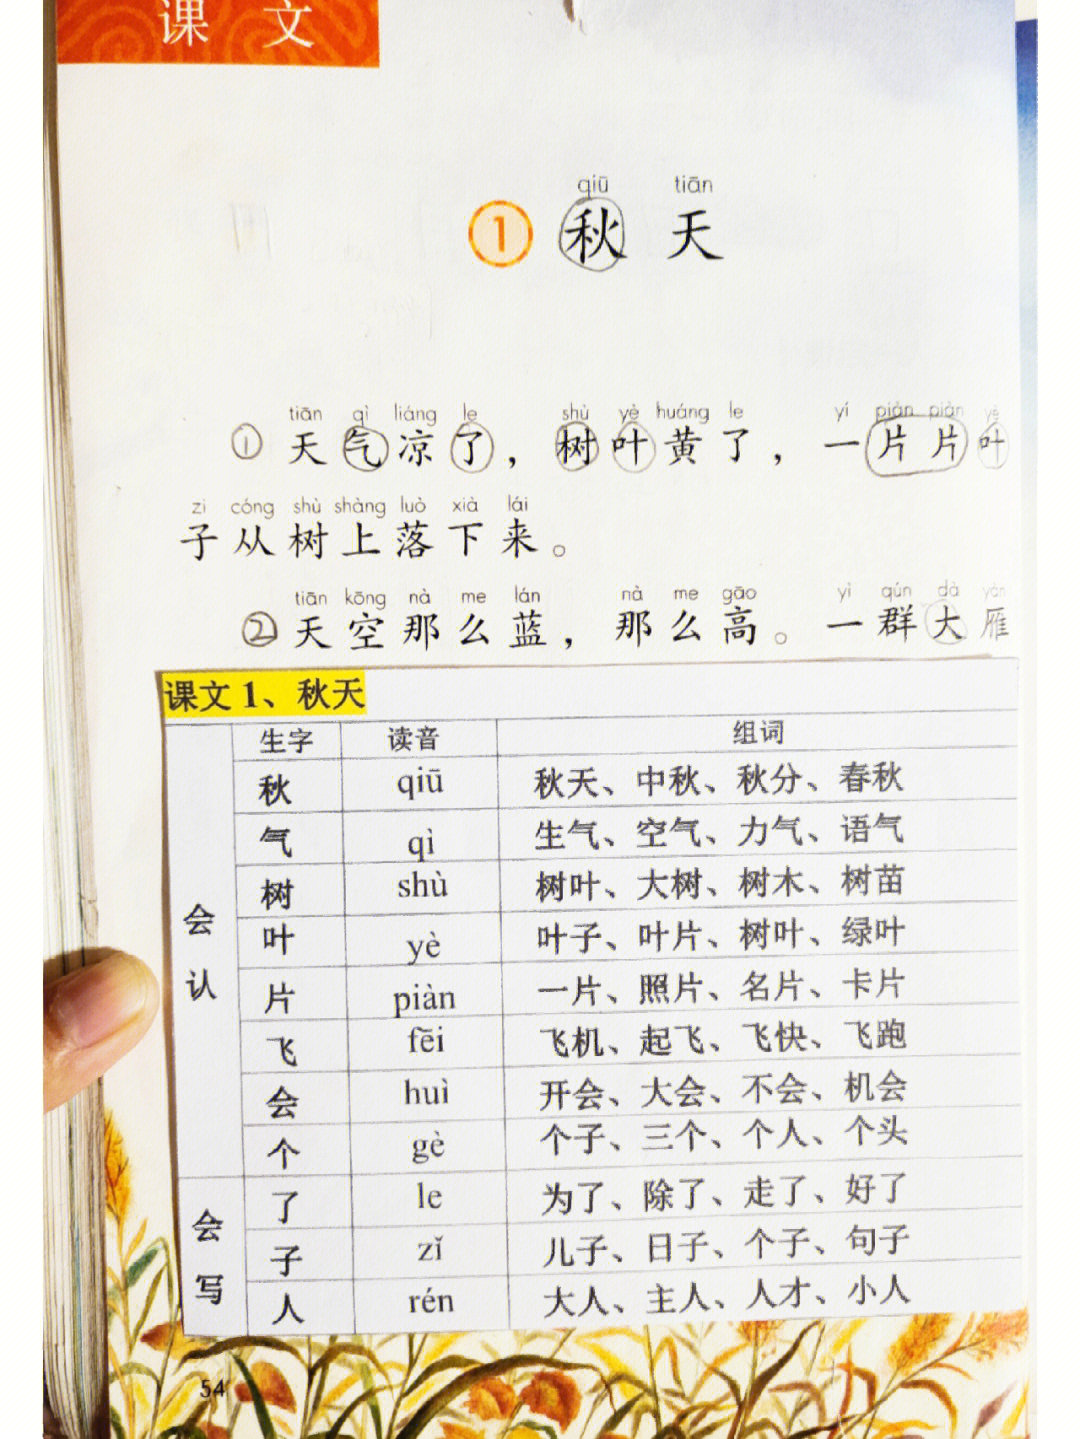 课 文
qiū tiān
1 秋 天
tiān qì liáng le shù yè huáng le yí piàn piàn yè
① 天气凉了，树叶黄了，一片片叶
zi cóng shù shàng luò xià lái
子从树上落下来。
tiān kōng nà me lán nà me gāo yì qún dà yàn
② 天空那么蓝，那么高。一群大雁
课文 1、秋天
生字 读音 组词
会认
秋 qiū 秋天、中秋、秋分、春秋
气 qì 生气、空气、力气、语气
树 shù 树叶、大树、树木、树苗
叶 yè 叶子、叶片、树叶、绿叶
片 piàn 一片、照片、名片、卡片
飞 fēi 飞机、起飞、飞快、飞跑
会 huì 开会、大会、不会、机会
个 gè 个子、三个、个人、个头
会写
了 le 为了、除了、走了、好了
子 zǐ 儿子、日子、个子、句子
人 rén 大人、主人、人才、小人
54